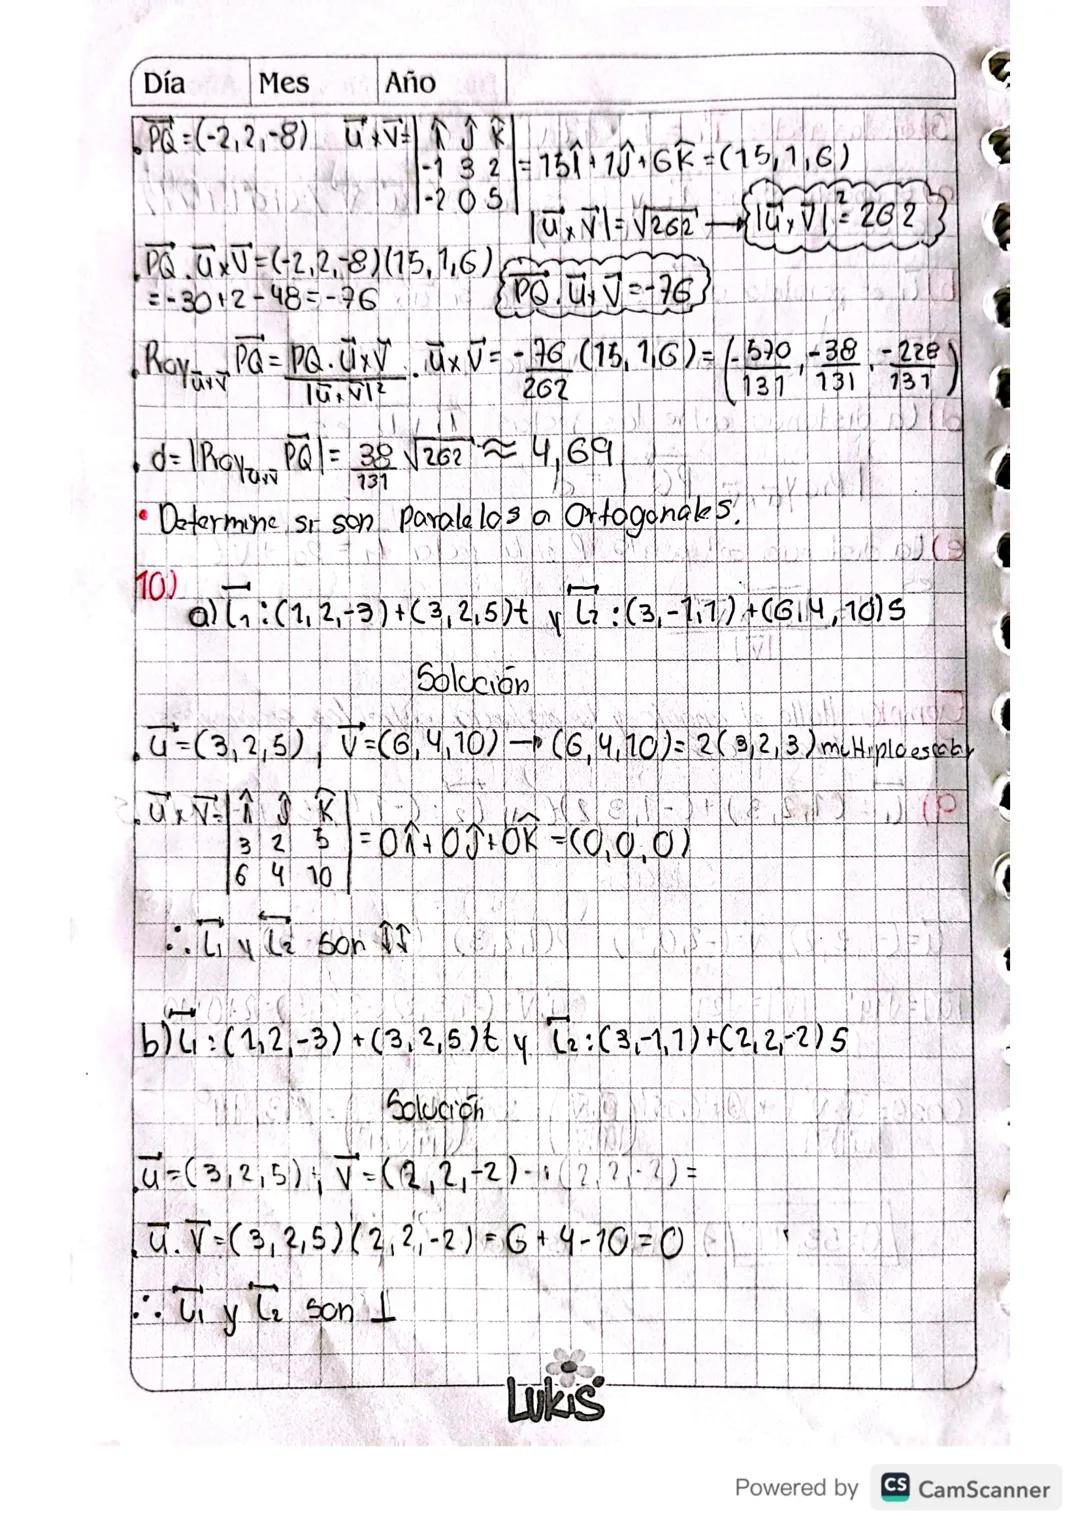 Día Mes Año
. PQ⃗ = (-2, 2, -8) u⃗ x v⃗ = | î ĵ k̂ |
| -1 3 2 | = 15î + 1ĵ + 6k̂ = (15, 1, 6)
| -2 0 5 |
|u⃗ x v⃗| = √262 → |u⃗ x v⃗|² = 262
. PQ⃗ . u⃗ x v⃗ = (-2, 2, -8)(15, 1, 6)
= -30 + 2 - 48 = -76 PQ⃗ . u⃗ x v⃗ = -76
. Proy u⃗xv⃗ PQ⃗ = PQ . u⃗ x v⃗ / |u⃗ x v⃗|² . u⃗ x v⃗ = -76/262 (15, 1, 6) = (-570/131, -38/131, -228/131)
. d = |Proy u⃗xv⃗ PQ⃗| = 38/131 √262 ≈ 4,69
• Determine si son paralelos o Ortogonales.
10)
a) L₁ : (1, 2, -3) + (3, 2, 5)t y L₂ : (3, -1, 1) + (6, 4, 10)s
Solución
. u⃗ = (3, 2, 5) , v⃗ = (6, 4, 10) → (6, 4, 10) = 2(3, 2, 3) multiplo escalar
. u⃗ x v⃗ = | î ĵ k̂ |
| 3 2 5 | = 0î + 0ĵ + 0k̂ = (0, 0, 0)
| 6 4 10 |
∴ L₁ y L₂ son ⇈
b) L₁ : (1, 2, -3) + (3, 2, 5)t y L₂ : (3, -1, 1) + (2, 2, -2)s
Solución
. u⃗ = (3, 2, 5) ; v⃗ = (2, 2, -2) → (2, 2, -2) =
. u⃗ . v⃗ = (3, 2, 5)(2, 2, -2) = 6 + 4 - 10 = 0
∴ L₁ y L₂ son ⊥
Lukis
Powered by CS CamScanner